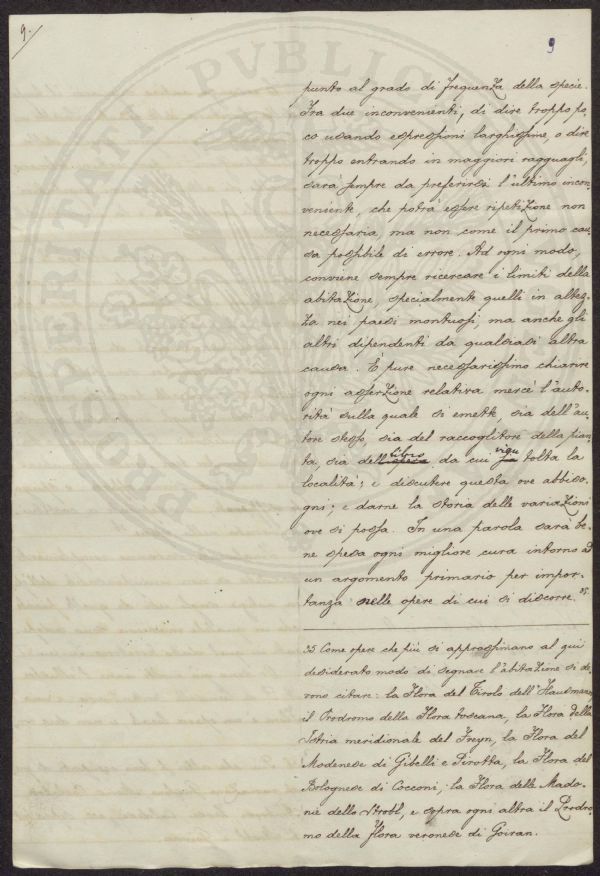 9.
9
punto al grado di frequenza della specie.
Fra due inconvenienti, di dire troppo po-
co usando espressioni larghissime, o dire
troppo entrando in maggiori ragguagli,
sarà sempre da preferirsi l'ultimo incon-
veniente, che potrà essere ripetizione non
necessaria, ma non come il primo cau-
sa possibile di errore. Ad ogni modo,
conviene sempre ricercare i limiti della
abitazione, specialmente quelli in altez-
za nei paesi montuosi, ma anche gli
altri dipendenti da qualsiasi altra
causa. È pure necessarissimo chiarire
ogni asserzione relativa mercè l'auto-
rità sulla quale si emette, sia dell'au-
tore stesso, sia del raccoglitore della pian-
libro
ta, sia dell'opera da cui tolta la
località; e discutere questa ove abbiso-
gni; e darne la storia delle variazioni
ove si possa. In una parola sarà be-
ne spesa ogni migliore cura intorno ad
un argomento primario per impor-
tanza nelle opere di cui si discorre. 35.
35 Come opere che più si approssimano al qui
desiderato modo di segnare l'abitazione si de-
vono citare: la Flora del Tirolo dell'Hausmann,
il Prodromo della Flora toscana, la Flora della
Istria meridionale del Freyn, la Flora del
Modenese di Gibelli e Pirotta, la Flora del
Bolognese di Cocconi, la Flora delle Mado-
nie dello Strobl, e sopra ogni altra il Prodro-
mo della flora veronese di Goiran.
PROSPERITATI PVBLIC